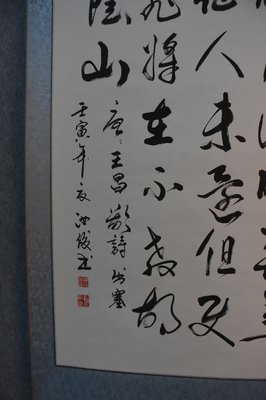 征人未還但使
飛將在不教胡
陰山
唐、王昌齡詩出塞
壬寅年夏
书